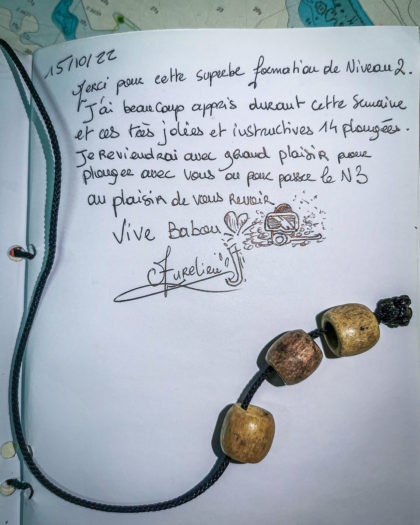 15/10/22
Merci pour cette superbe formation de Niveau 2.
J'ai beaucoup appris durant cette semaine
et ces très jolies et instructives 14 plongées.
Je reviendrai avec grand plaisir pour
plonger avec vous ou pour passer le N3
au plaisir de vous revoir
Vive Babou
Aurélien